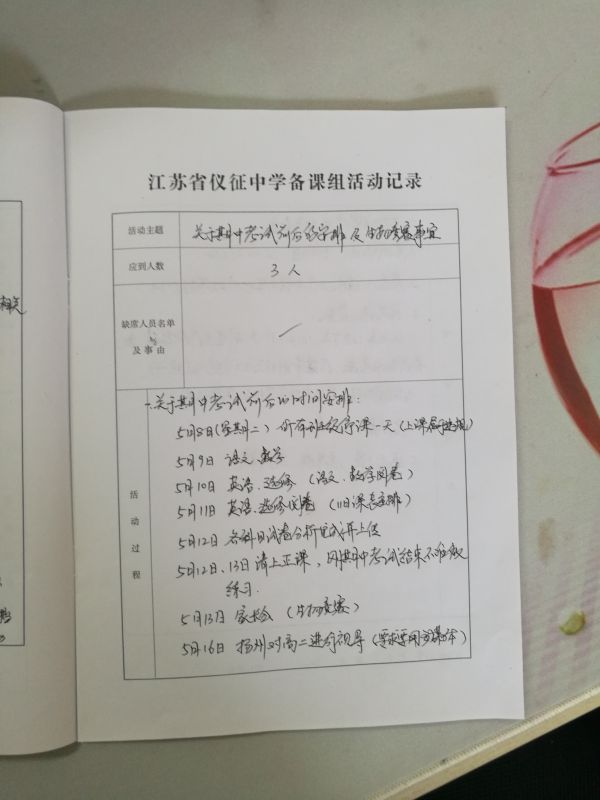 江苏省仪征中学备课组活动记录
活动主题 关于期中考试前后的安排及生物竞赛事宜
应到人数 3人
缺席人员名单
及事由
活动过程
一.关于期中考试前后的时间安排:
5月8日(星期二) 所有班级停课一天(上课属违规)
5月9日 语文 数学
5月10日 英语、选修 (语文、数学阅卷)
5月11日 英语、选修阅卷 (11日课表重排)
5月12日 各科目试卷分析
5月12、13日 请上正课,因期中考试结束不难
练习.
5月13日 家长会 (生物竞赛)
5月16日 扬州对高二进行视导